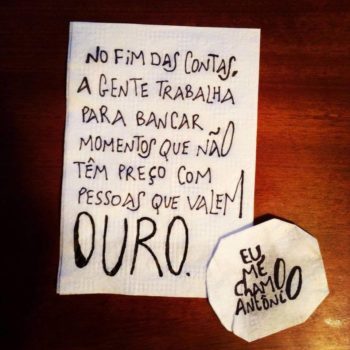 NO FIM DAS CONTAS,
A GENTE TRABALHA
PARA BANCAR
MOMENTOS QUE NÃO
TÊM PREÇO COM
PESSOAS QUE VALEM
OURO.
EU
ME
CHAMO
ANTÔNIO